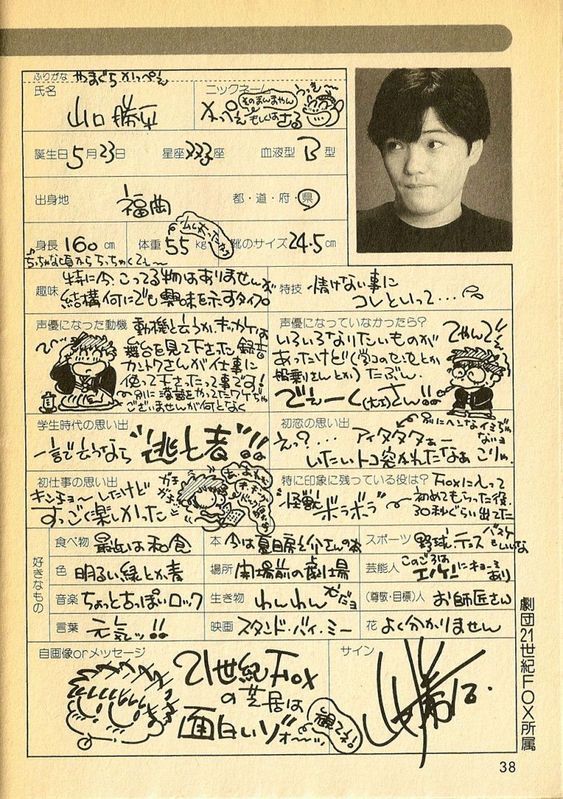 ふりがな やまぐち かっぺい
氏名 山口勝平
ニックネーム かっぺい もしくは さる
誕生日 5月23日 星座 ふたご座 血液型 B型
出身地 福岡 都・道・府・県
身長 160cm 体重 55kg 靴のサイズ 24.5cm
ちっちゃな頃からちっちゃくて〜
趣味 特に今、こってる物はありませんが
結構何にでも興味を示すタイプ
特技 情けない事に
コレといって…
声優になった動機 動機とゆうかキッカケは
舞台を見て下さった録音
カントクさんが仕事に
使って下さったって事です!
声優になっていなかったら?
いろいろなりたいものが
あったけど
たぶん
でぇーく(大工)さん!!
てやんでぇ
学生時代の思い出
一言でゆうなら “逃亡者”!!
初恋の思い出
え?… アイタタタぁー
いたいトコ突かれたなぁ こりゃ
初仕事の思い出
キンチョーしたけど
すっごく楽しかった
特に印象に残っている役は?
Foxに入って
初めてもらった役
怪獣 ボラボラ
30秒ぐらい出てた
好きなもの
食べ物 最近は和食
本 今は夏目房之介さんの本
スポーツ 野球、テニス バスケもいいな
色 明るい緑とか青
場所 開場前の劇場
芸能人 このごろは エノケンにキョーミあり
音楽 ちょっと古っぽいロック
生き物 わんわん
(尊敬・目標)人 お師匠さん
言葉 元気ッ!!
映画 スタンド・バイ・ミー
花 よく分かりません
自画像orメッセージ
21世紀Fox
の芝居は
面白いゾォ〜ッ
観てネ!
サイン
劇団21世紀FOX所属
38